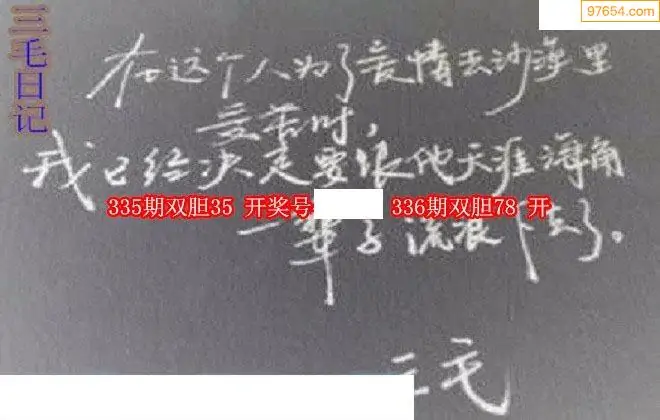 97654.com
三毛日记
在这个人为了爱情去沙漠里
受苦时，
我已经决定要跟他天涯海角
335期双胆35 开奖号 336期双胆78 开
一辈子流浪下去了。
三毛